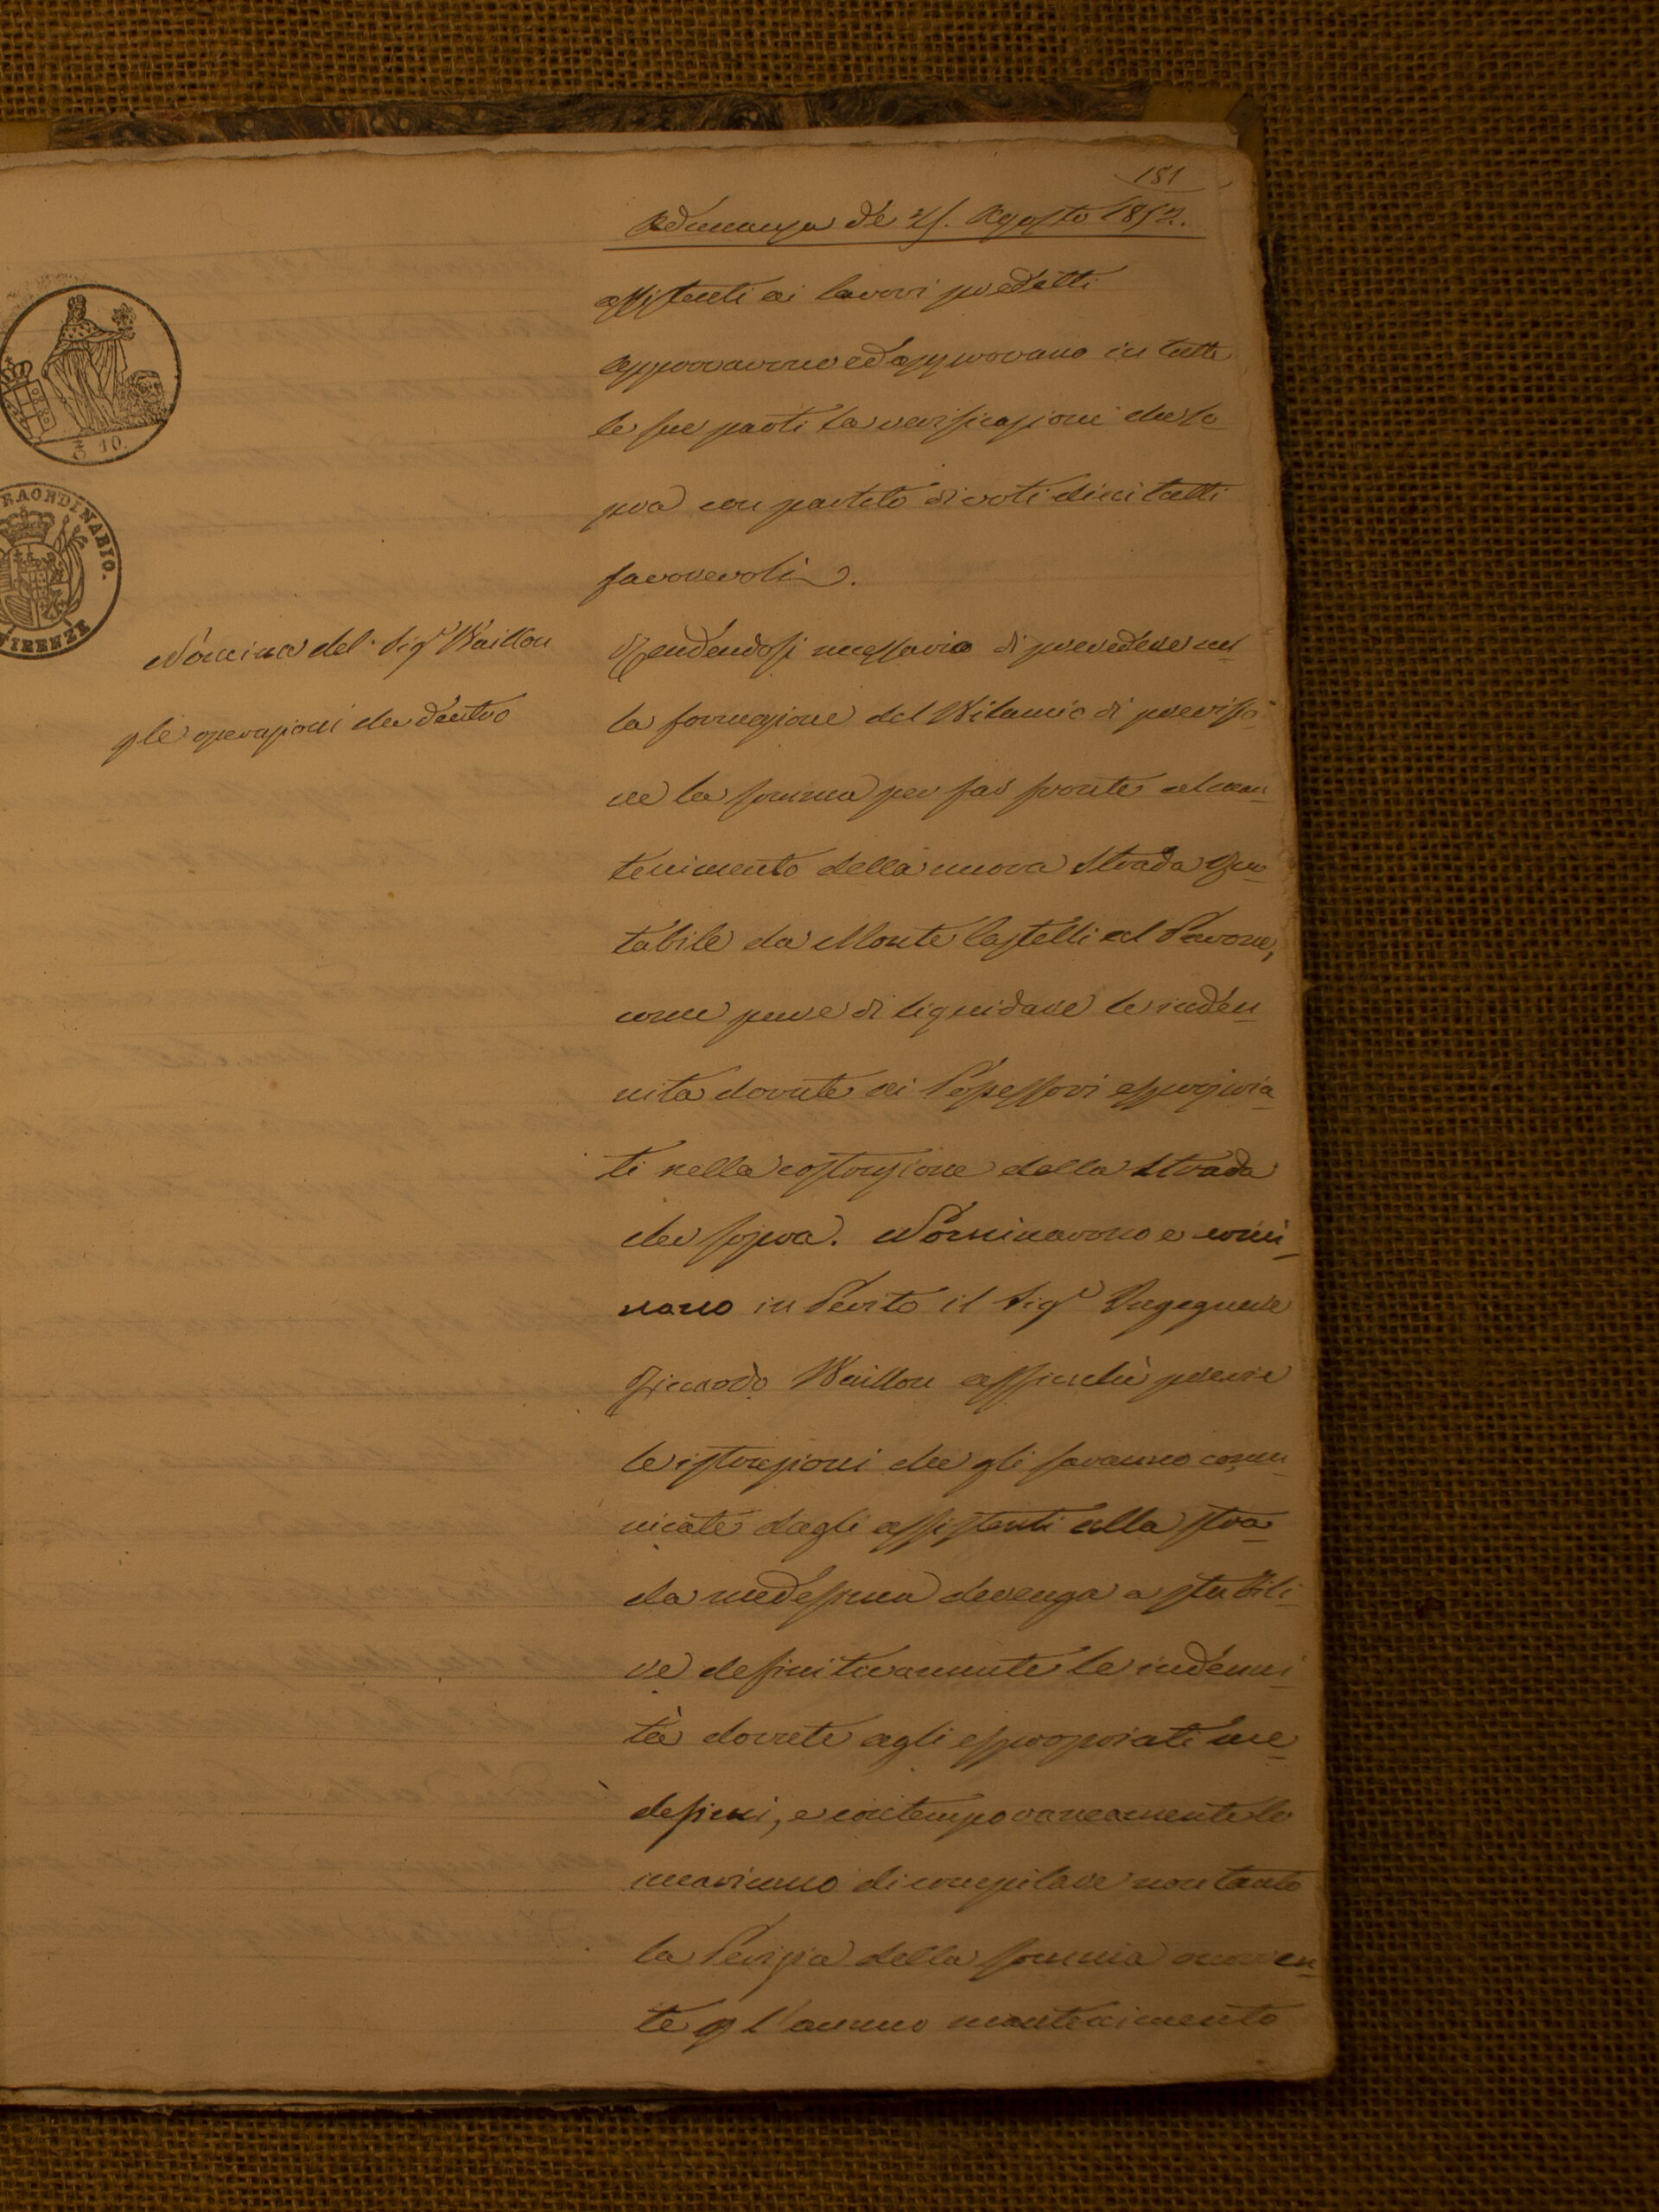 181
Adunanza de 25. Agosto 1852.
assistenti ai lavori predetti
Approvarono ed approvano in tutte
le sue parti la verificazione che so-
pra con partito di voti dieci tutti
favorevoli.
Nomina del Sigr Vaillon
p le operazioni da dentro
Rendendosi necessario di prevedere nel
la formazione del Bilancio di previsio-
ne la somma per far fronte al man-
tenimento della nuova Strada Ruo-
tabile da Monte Castelli al Pavone,
come pure di liquidare le inden
nità dovute ai Possessori espropria-
ti nella costruzione della Strada
che sopra. Nominarono e nomi-
nano in Perito il Sigr Ingegnere
Riccardo Vaillon affinchè previe
le istruzioni che gli saranno comu-
nicate dagli assistenti alla stra-
da medesima devenga a stabili-
re definitivamente le indenni-
tà dovute agli espropriati me-
desimi, e contemporaneamente lo
incaricano di compilare non tanto
la Perizia della somma occorren-
te p l'annuo mantenimento
10
RAORDINARIO.
FIRENZE